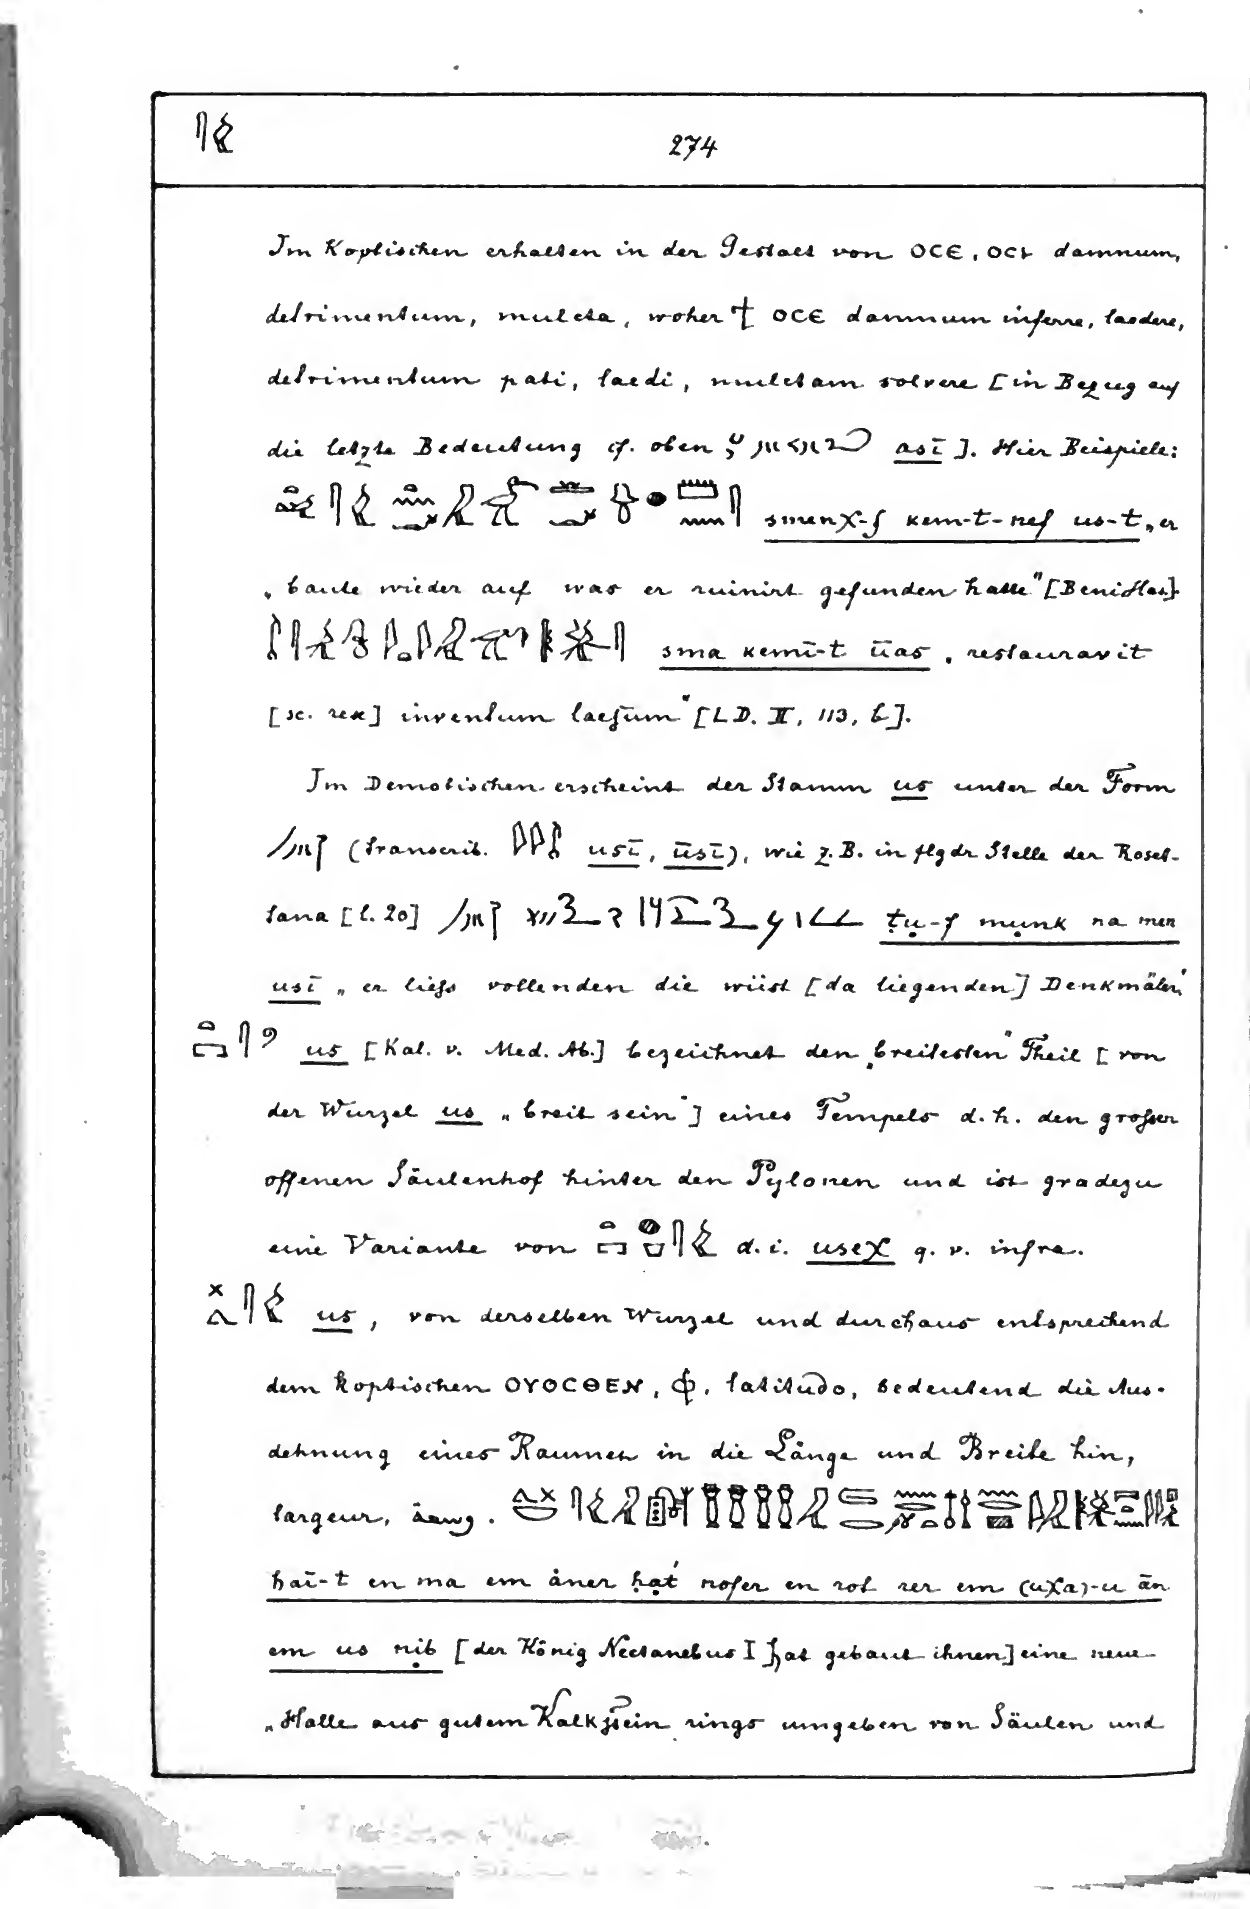 274
Im Koptischen erhalten in der Gestalt von ⲞⲤⲈ, ⲞⲤⲒ damnum,
detrimentum, mulcta, woher ϯ ⲞⲤⲈ damnum inferre, laedere,
detrimentum pati, laedi, mulctam solvere [in Bezug auf
die letzte Bedeutung cf. oben asī]. Hier Beispiele:
smenχ-f kem-t-nef us-t „er
„baute wieder auf was er ruinirt gefunden hatte" [BeniHas.]
sma kemī-t ūas „restauravit
[sc. rex] inventum laesum" [LD. II, 113, b].
Im Demotischen erscheint der Stamm us unter der Form
(transcrib. usī, ūsī), wie z.B. in flgdr Stelle der Roset-
tana [l. 20] ṭụ-f mụnk na men
usī „er liess vollenden die wüst [da liegenden] Denkmäler"
us [Kal. v. Med. Ab.] bezeichnet den „breitesten" Theil [von
der Wurzel us „breit sein"] eines Tempels d.h. den grossen
offenen Säulenhof hinter den Pylonen und ist gradezu
eine Variante von d. i. useχ q. v. infra.
us, von derselben Wurzel und durchaus entsprechend
dem koptischen ⲞⲨⲞⲤⲐⲈⲚ, latitudo, bedeutend die Aus-
dehnung eines Raumes in die Länge und Breite hin,
largeur,
ḥaī-t en ma em åner ḥạt' nofer en rot rer em (uχa)-u ān
em us nib [der König Nectanebus I hat gebaut ihnen] eine neue
„Halle aus gutem Kalkstein rings umgeben von Säulen und